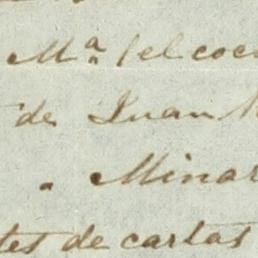 Mª (el coc
de Juan
Minar
tes de cartas